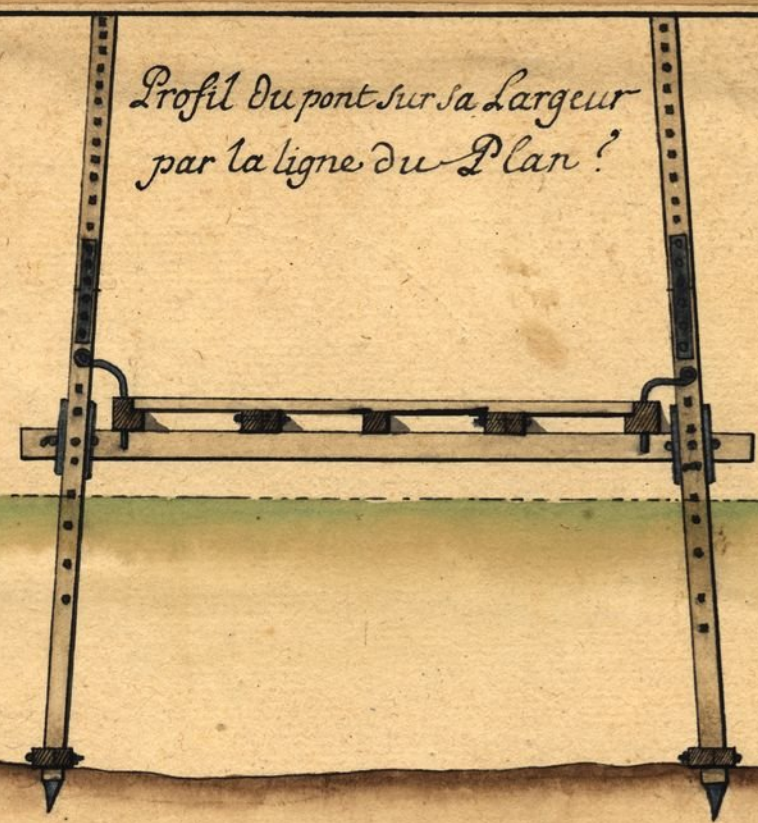 Profil du pont sur sa Largeur
par la ligne du Plan ?